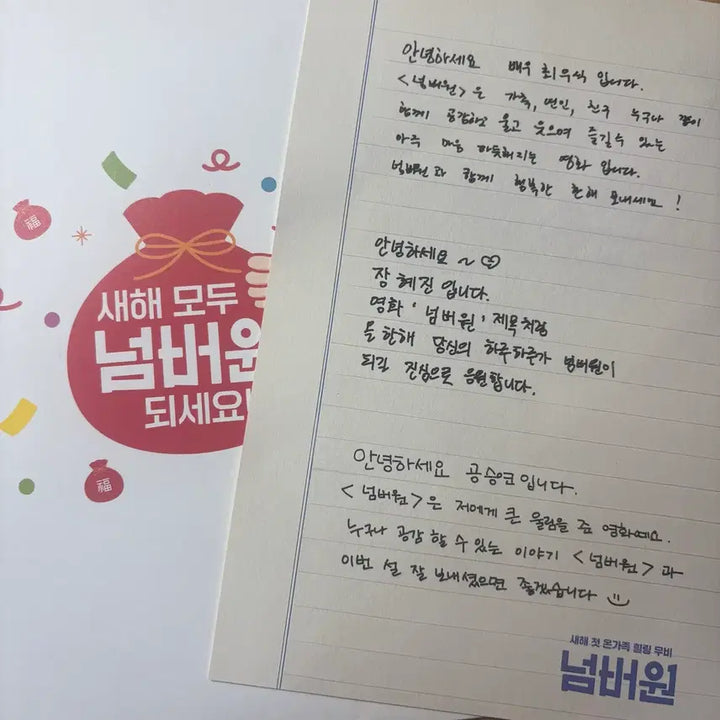 새해 모두
넘버원
되세요!
福
福
안녕하세요 배우 최우식 입니다.
<넘버원>은 가족, 연인, 친구 누구나 같이
함께 공감하고 울고 웃으며 즐길수 있는
아주 마음 따듯해지는 영화 입니다.
넘버원과 함께 행복한 한해 보내세요!
안녕하세요~♡
장혜진입니다.
영화 '넘버원' 제목처럼
올 한해 당신의 하루하루가 넘버원이
되길 진심으로 응원합니다.
안녕하세요 공승연입니다.
<넘버원>은 저에게 큰 울림을 준 영화예요.
누구나 공감 할 수 있는 이야기 <넘버원>과
이번 설 잘 보내셨으면 좋겠습니다
새해 첫 온가족 힐링 무비
넘버원